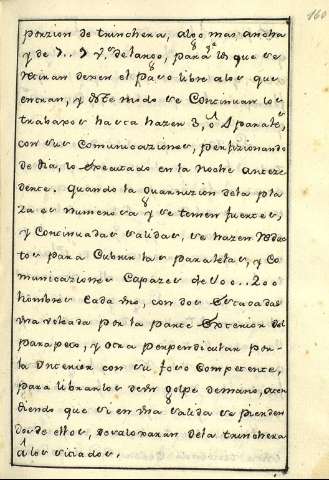 160
porzion de trinchera, algo mas ancha
y de 7.. 9 v.s de largo, para q.e los que se
retiran dexen el paso libre a los que
entran, y deste modo se Continuan los
trabaxos hasta hazen 3, ó 4 paralel.s,
con sus Comunicaciones, perfizionando
de dia, lo Executado en la noche antece
dente. quando la Guarnizion dela pla
za es numerosa y se temen fuertes,
y Continuadas salidas, se hazen Reduc
tos para Cubrir las paralelas, y Co
municaciones Capazes de 100.. 200
hombres Cada uno, con dos Estacadas
una por la parte Exterior del
parapeto, y otra perpendicular por
la Ynterior con su foso Competente,
para librarlos de un golpe de mano, aten
diendo que si en una salida se pierden
dos de ellos, de la trinchera
a los sitiados.